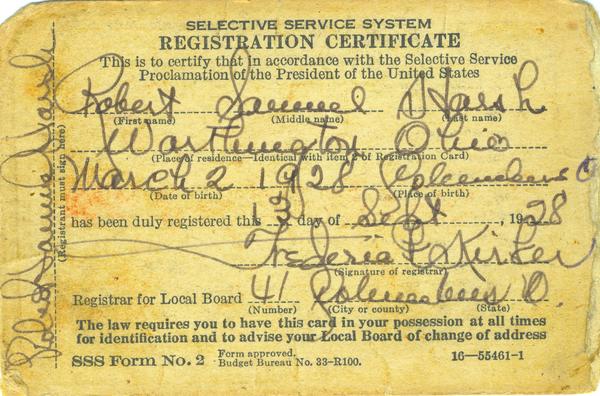 SELECTIVE SERVICE SYSTEM
REGISTRATION CERTIFICATE
This is to certify that in accordance with the Selective Service
Proclamation of the President of the United States
Robert Samuel Harsh
(First name) (Middle name) (Last name)
Worthington Ohio
(Place of residence—Identical with item 2 of Registration Card)
March 2 1928 Columbus O
(Date of birth) (Place of birth)
has been duly registered this 13 day of Sept, 1928
Kirker
(Signature of registrar)
Registrar for Local Board 41 Columbus O.
(Number) (City or county) (State)
The law requires you to have this card in your possession at all times
for identification and to advise your Local Board of change of address
SSS Form No. 2 Form approved.
Budget Bureau No. 33-R100. 16—55461-1
Robert Samuel Harsh
(Registrant must sign here)